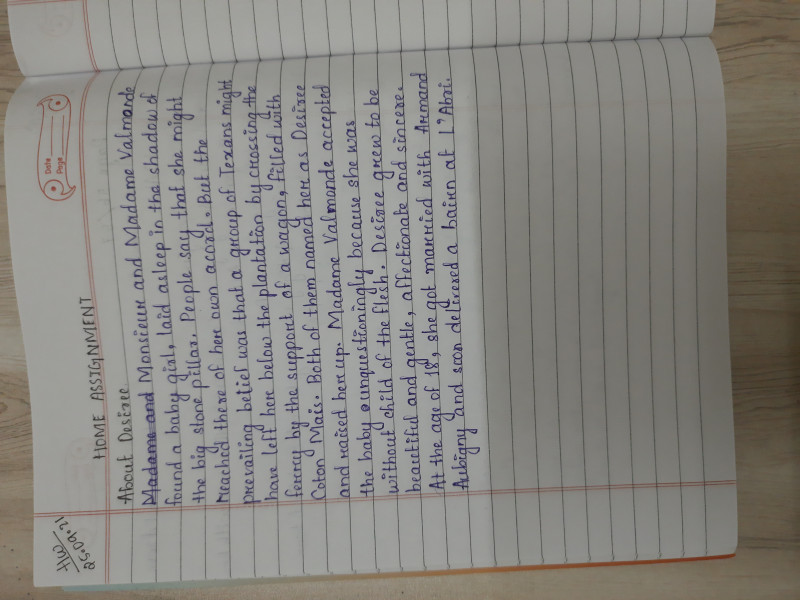 Date
Page
HW
25.09.21
HOME ASSIGNMENT
About Desiree
Madame and Monsieur and Madame Valmonde
found a baby girl, laid asleep in the shadow of
the big stone pillar. People say that she might
reached there of her own acord. But the
prevailing belief was that a group of Texans might
have left her below the plantation by crossing the
ferry by the support of a wagon, filled with
Coton Mais. Both of them named her as Desiree
and raised her up. Madame Valmonde accepted
the baby unquestioningly because she was
without child of the flesh. Desiree grew to be
beautiful and gentle, affectionate and sincere.
At the age of 18, she got married with Armand
Aubigny and soon delivered a bairn at L'Abri.